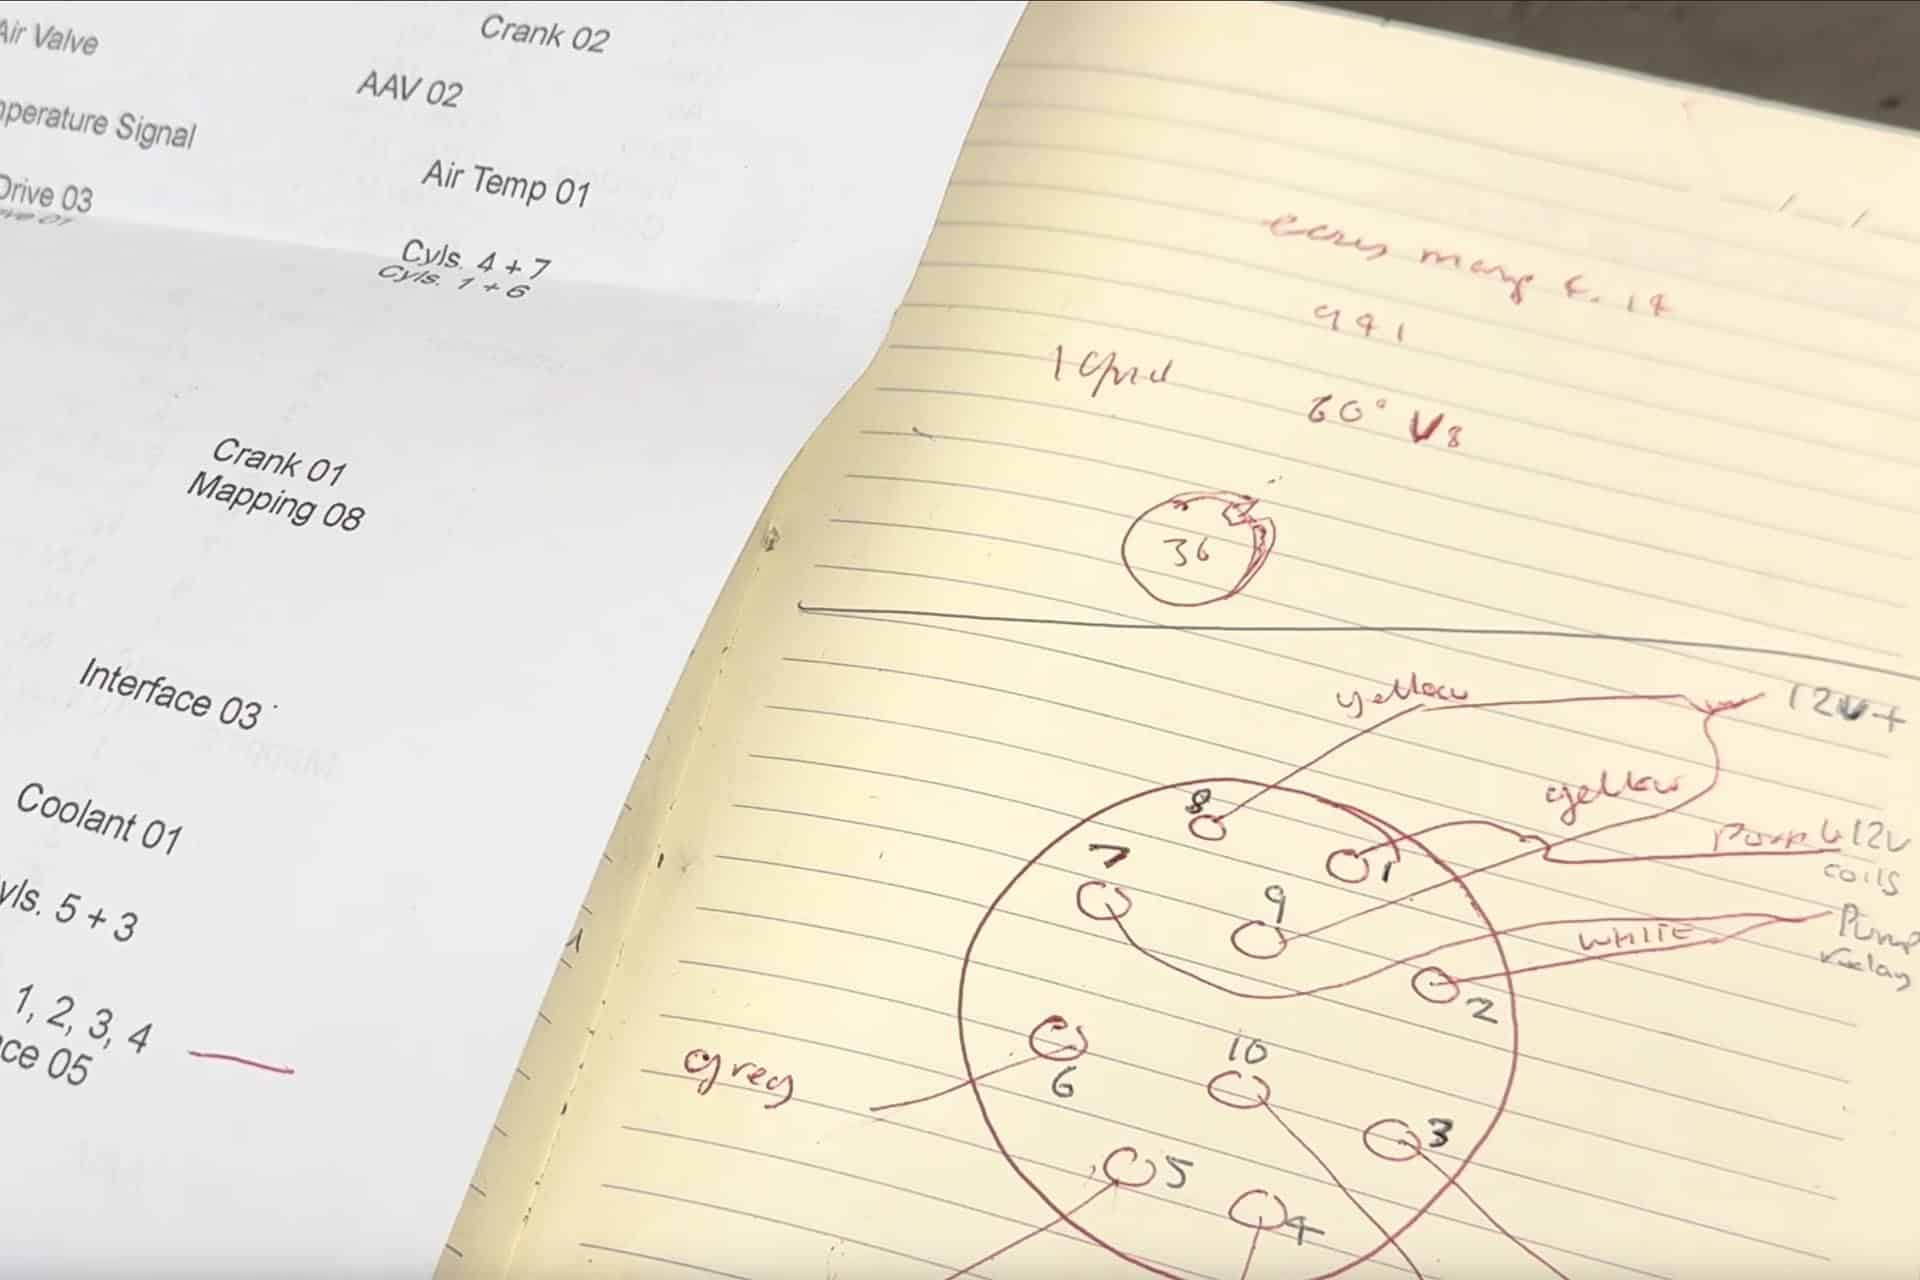 Air Valve
Crank 02
AAV 02
perature Signal
Air Temp 01
Drive 03
Cyls. 4 + 7
Cyls. 1 + 6
Crank 01
Mapping 08
Interface 03
Coolant 01
yls. 5 + 3
1, 2, 3, 4
ce 05
60° V8
36
yellow
12V+
yellow
8
12V
coils
7
1
9
Pump
relay
WHITE
2
grey
6
10
3
5
4